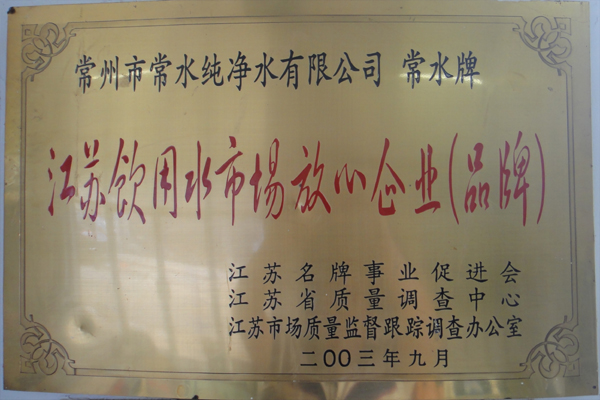 常州市常水纯净水有限公司 常水牌
江苏饮用水市场放心企业(品牌)
江苏名牌事业促进会
江苏省质量调查中心
江苏市场质量监督跟踪调查办公室
二00三年九月